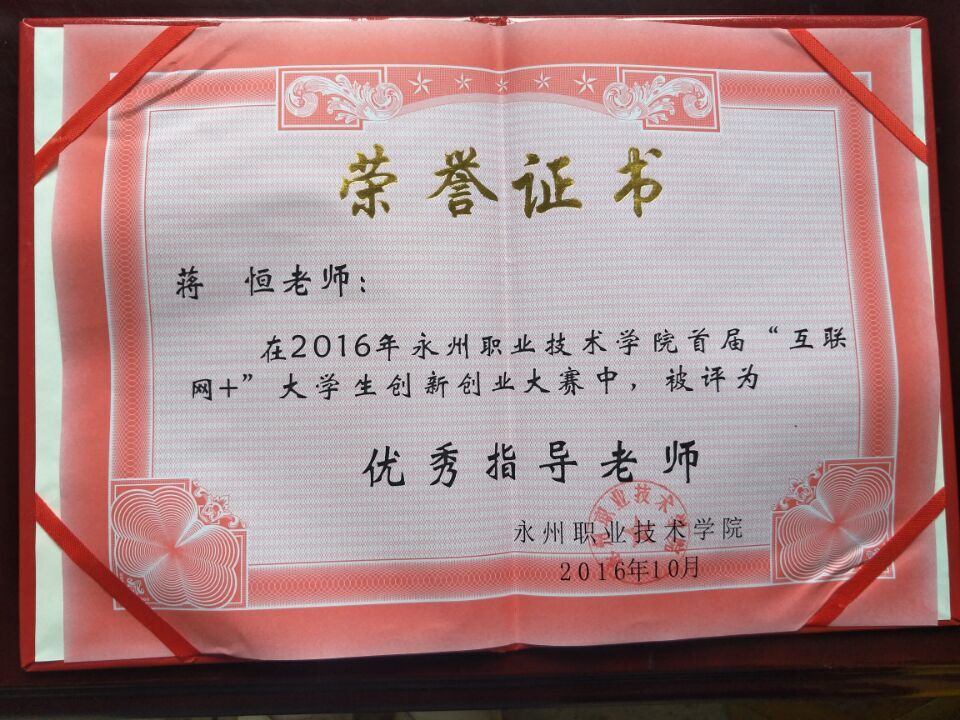 荣誉证书
蒋 恒老师：
在2016年永州职业技术学院首届“互联
网+”大学生创新创业大赛中，被评为
优秀指导老师
永州职业技术学院
2016年10月